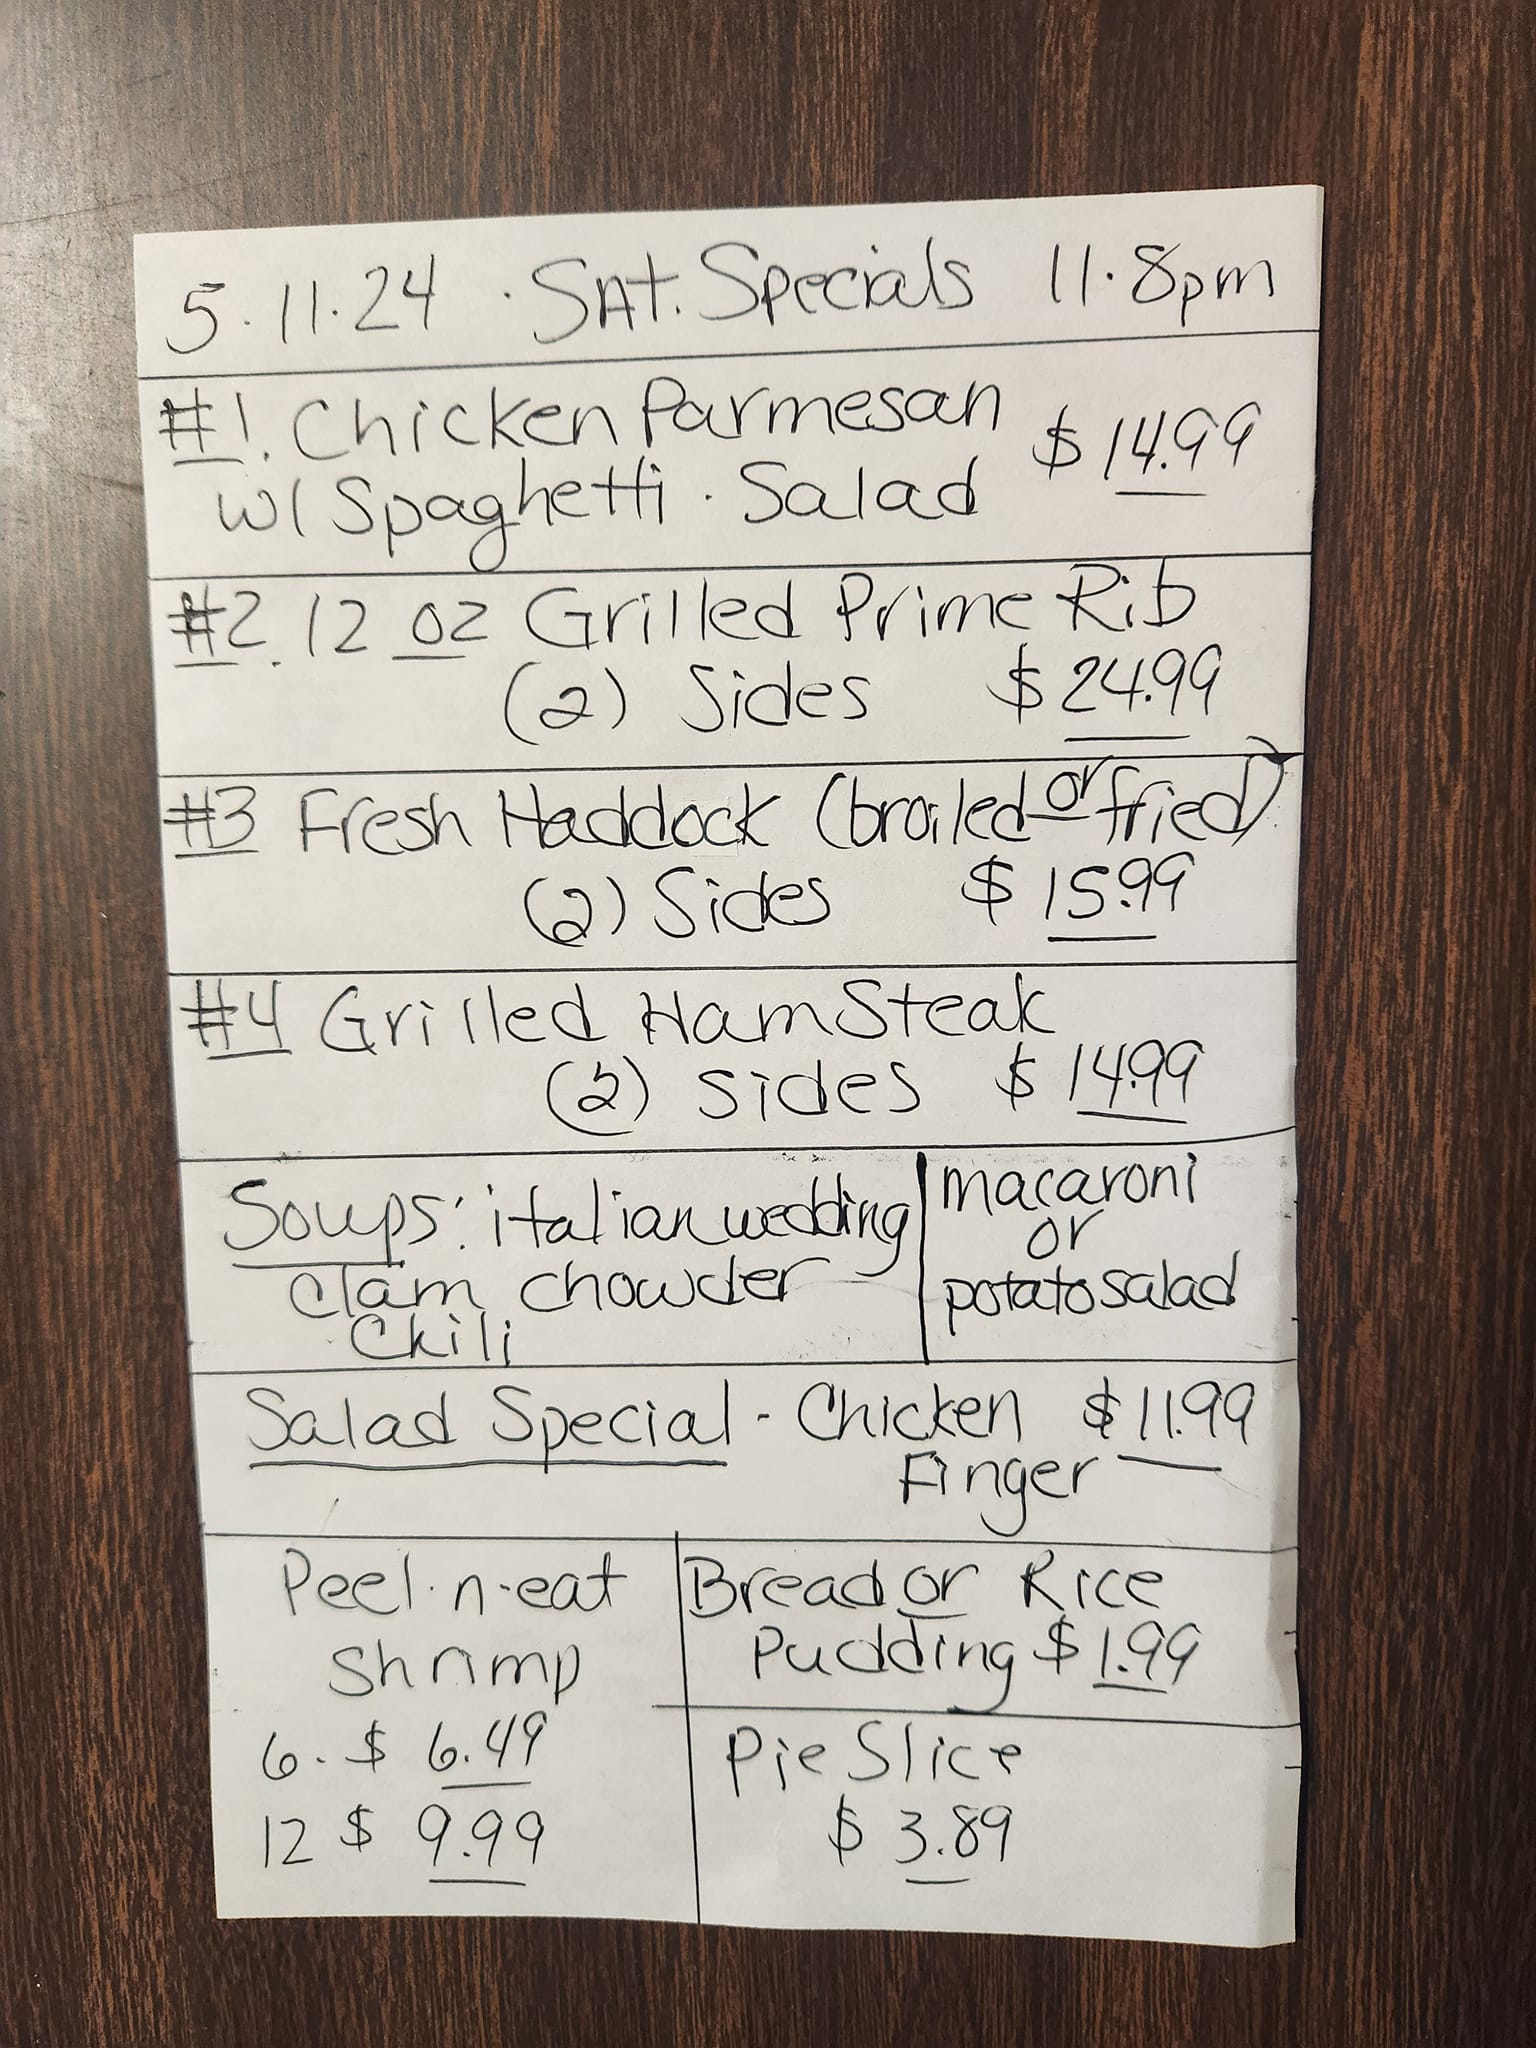 5.11.24 . SAt. Specials 11.8pm
#1. Chicken Parmesan $14.99
w/ Spaghetti . Salad
#2. 12 oz Grilled Prime Rib
(2) Sides $24.99
#3 Fresh Haddock (broiled or fried)
(2) Sides $15.99
#4 Grilled Ham Steak
(2) sides $14.99
Soups: italian wedding
clam chowder
Chili
macaroni
or
potato salad
Salad Special - Chicken $11.99
Finger
Peel-n-eat
Shrimp
6. $6.49
12 $9.99
Bread or Rice
Pudding $1.99
Pie Slice
$3.89